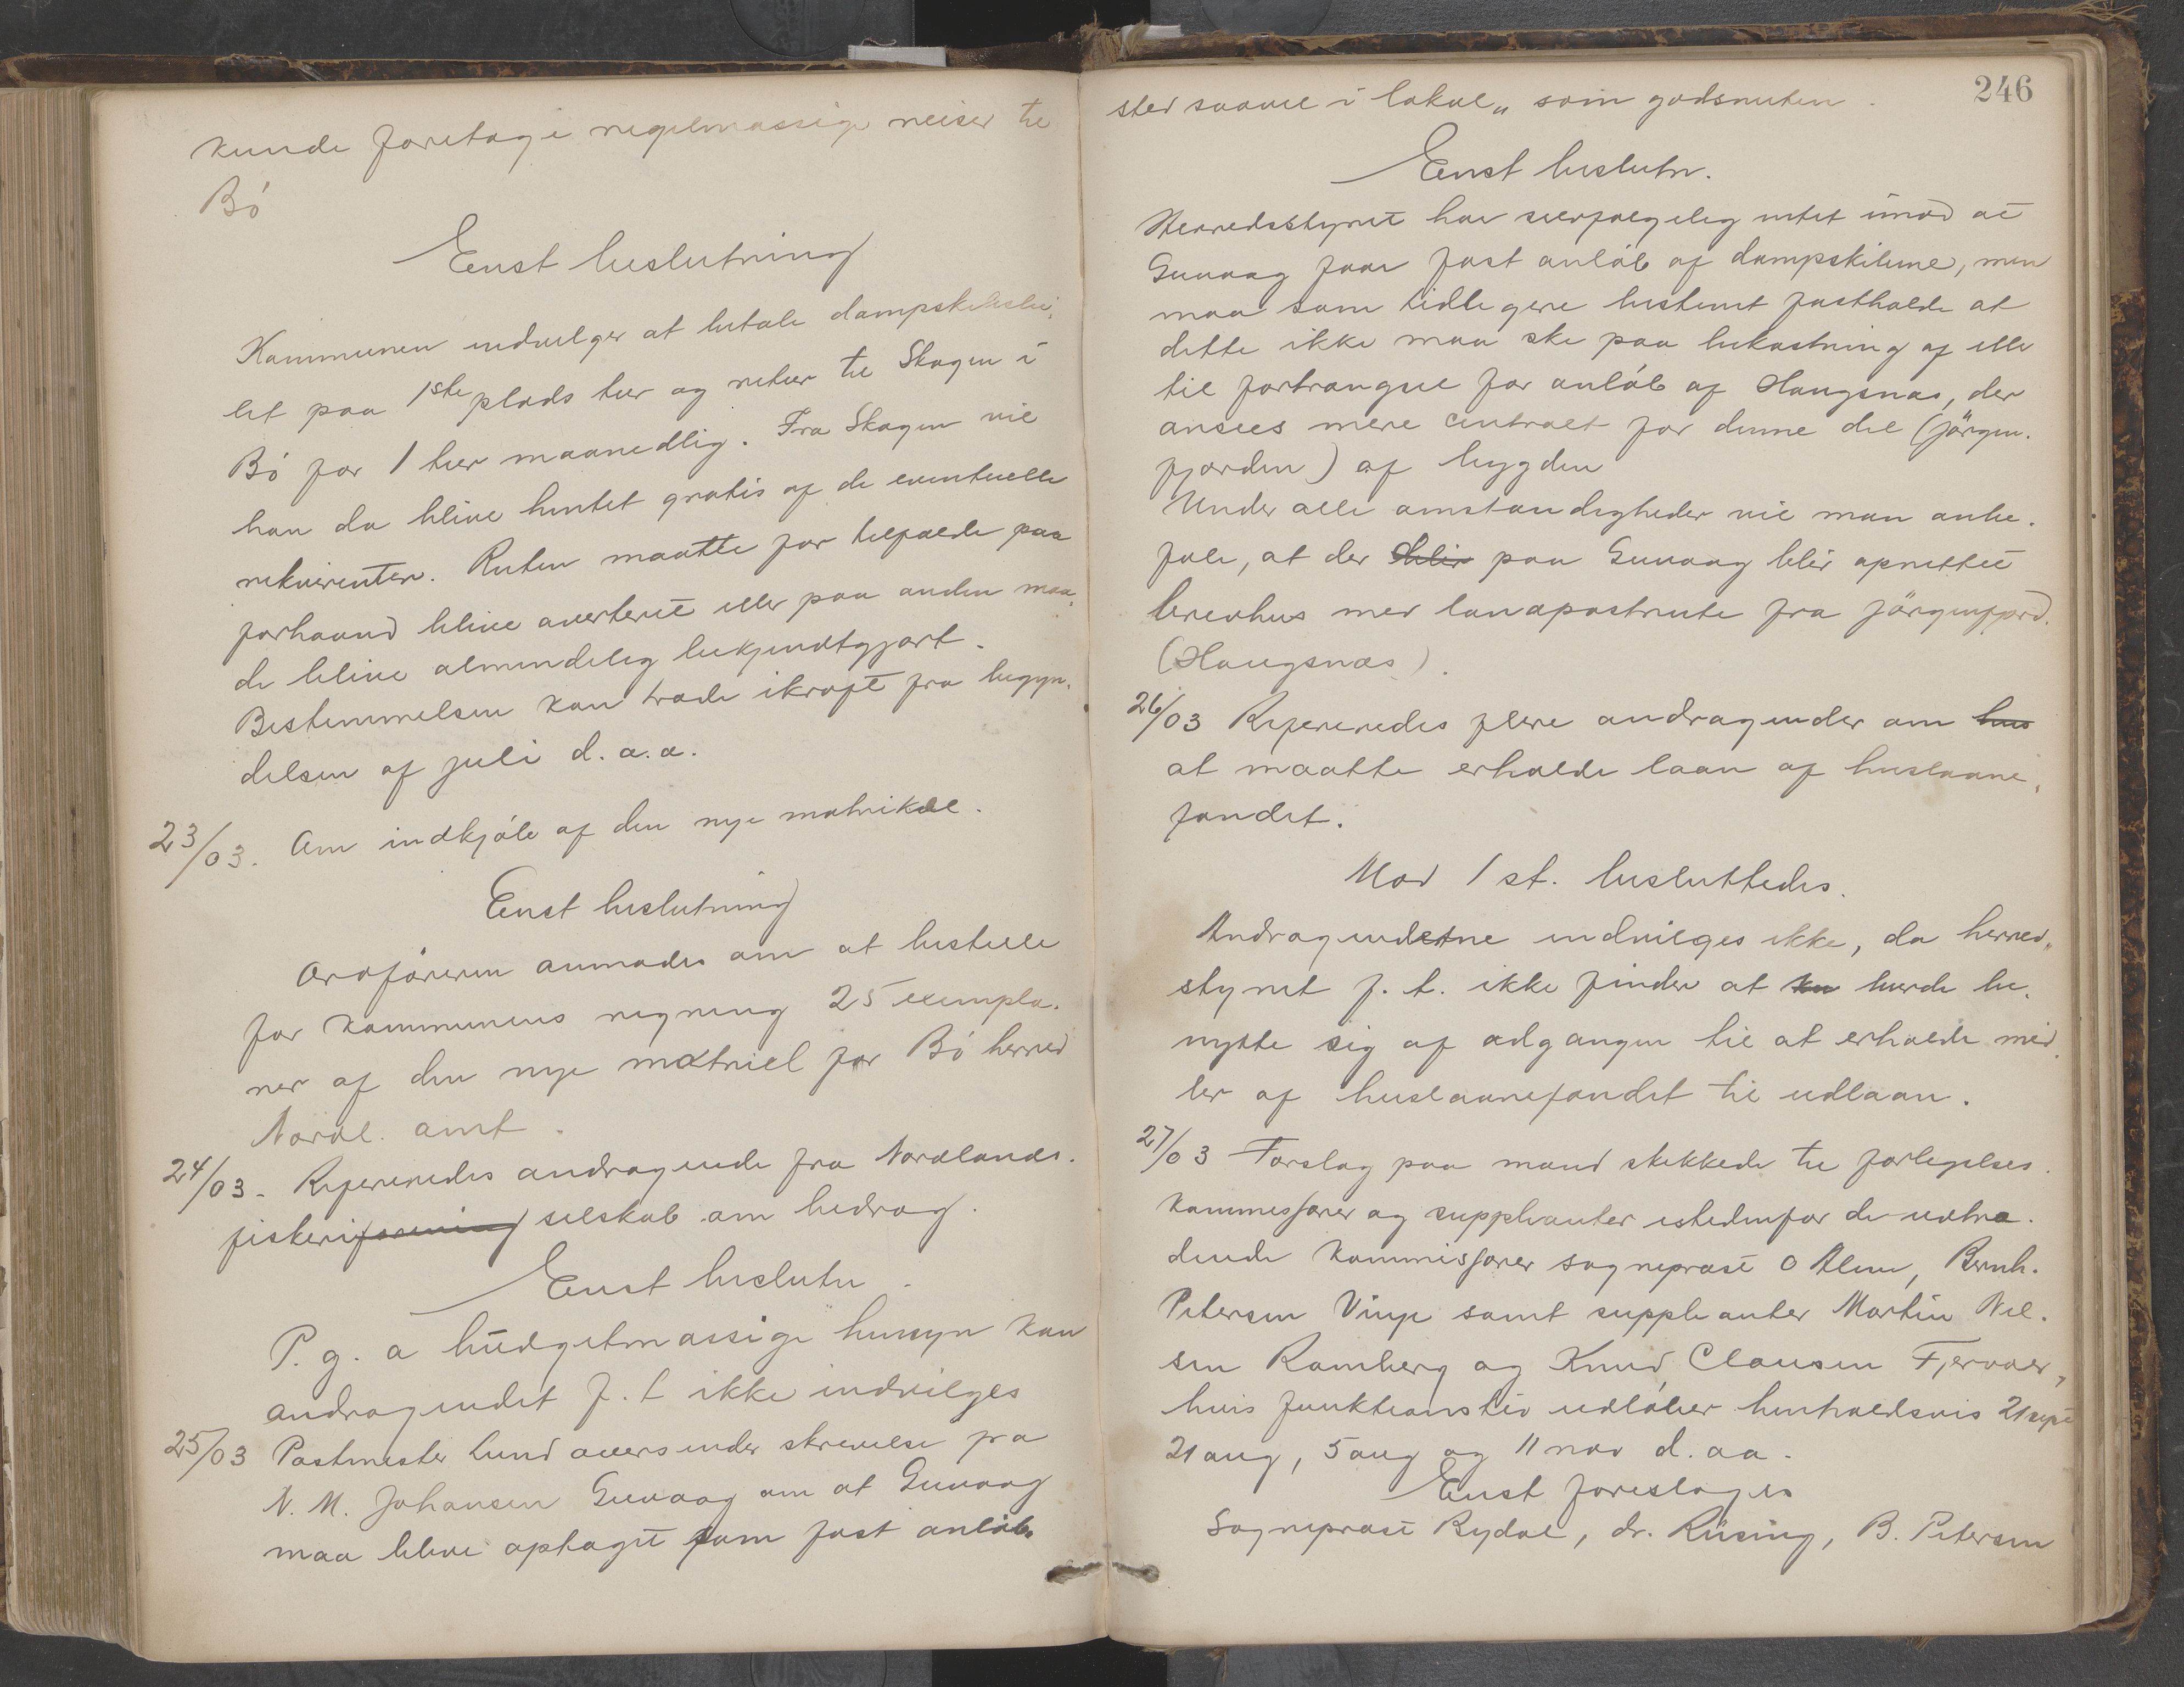 kunde foretage regelmæssige reiser til
Bö
Enst beslutning
Kommunen indvilger at betale dampskibsbil-
let paa 1ste plads tur og retur til Skagen i
Bö for 1 tur maanedlig. Fra Skagen vil
han da blive hentet gratis af de eventuelle
rekvirenter. Ruten maatte for tilfælde paa
forhaand blive averteret eller paa anden maa-
de blive almindelig bekjendtgjort.
Bestemmelsen kan træde ikraft fra begyn-
delsen af juli d. a.a.
23/03. Om indkjöb af den nye matrikel.
Enst beslutning
Ordföreren anmodes om at bestille
for kommunens regning 25 exempla-
rer af den nye matriel for Bö herred
Nordl. amt.
24/03. Refereredes andragende fra Nordlands
fiskeriforening selskab om bidrag.
Enst beslutn.
P. g. a budgetmæssige hensyn kan
andragendet f. t ikke indvilges
25/03 Postmester Lund oversender skrivelse fra
N. M. Johansen Guvaag om at Guvaag
maa blive optaget som fast anlöbs
246
sted saavel i lokal„ som godsruten.
Enst beslutn.
Herredsstyret har selvfølgelig intet imod at
Guvaag faar fast anlöb af dampskibene, men
maa som tidligere bestemt fastholde at
dette ikke maa ske paa bekostning af elle
til fortrængsel for anlöb af Haugsnæs, der
ansees mere centralt for denne del (Jörgen-
fjorden) af bygden
Under alle omstændigheder vil man anbe-
fale, at der blir paa Guvaag blir oprettet
brevhus med landpostrute fra Jörgenfjord.
(Haugsnæs).
26/03 Refereredes flere andragender om hus
at maatte erholde laan af huslaane-
fondet.
Mod 1 st. besluttedes.
Andragendetne indvilges ikke, da herred„
styret f. t. ikke finder at kn burde be-
nytte sig af adgangen til at erholde mid-
ler af huslaanefondet til udlaan.
27/03 Forslag paa mænd skikkede til forligelses-
kommissærer og suppleanter istedenfor de udtræ-
dende kommissærer sogneprest O Alme, Bernh.
Petersen Vinje samt suppleanter Martin Nil-
sen Ramberg og Knud Clausen Fjærvoer,
hvis funktionstid udlöber henholdsvis 21 sept
21 aug, 5 aug og 11 nov d. aa.
Enst foreslages
Sogneprest Rydal, dr. Rüsing, B. Petersen